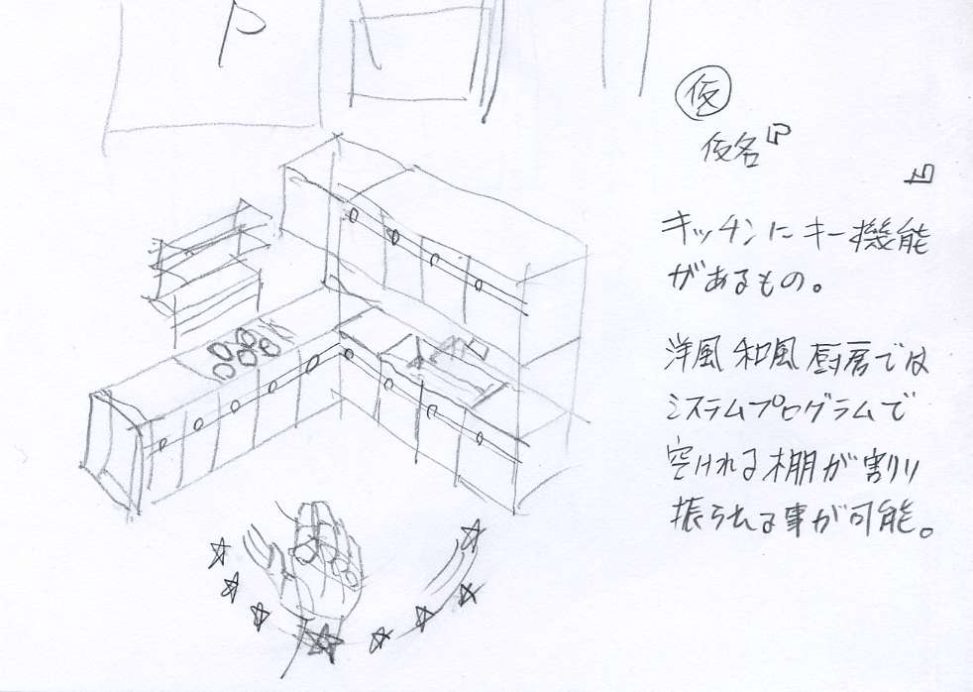 P
仮
仮名『
』
キッチンにキー機能
があるもの。
洋風和風厨房では
システムプログラムで
空けれる棚が割りり
振られる事が可能。